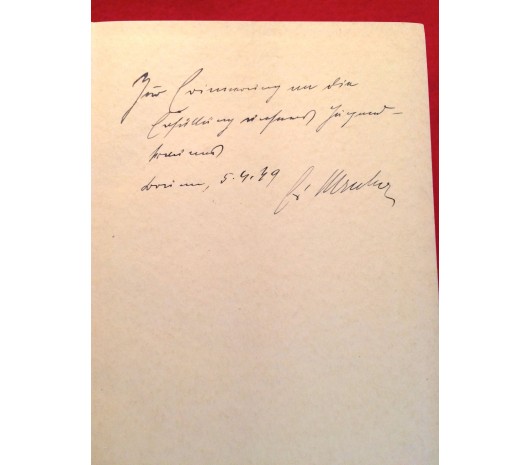 Zur Erinnerung an die
Erfüllung unseres Jugend-
traumes
5.4.39